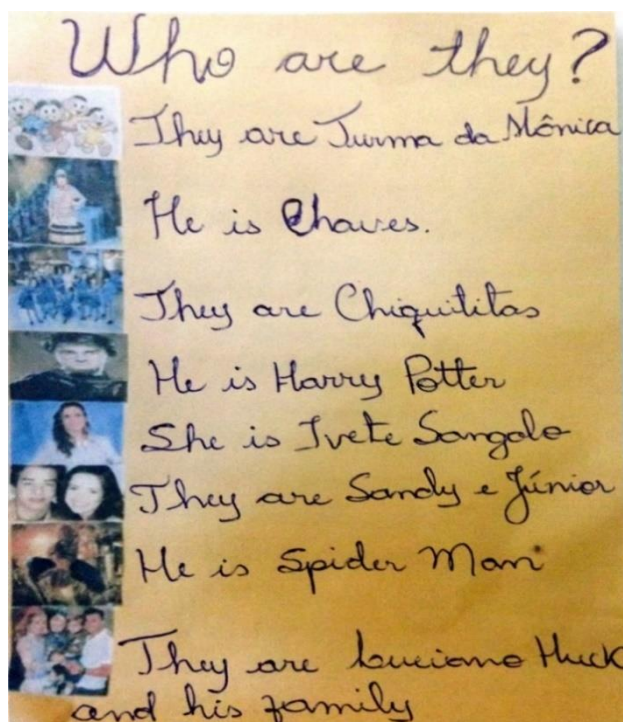 Who are they?
They are Turma da Mônica
He is Chaves.
They are Chiquititas
He is Harry Potter
She is Ivete Sangalo
They are Sandy e Júnior
He is Spider Man
They are Luciano Huck
and his family